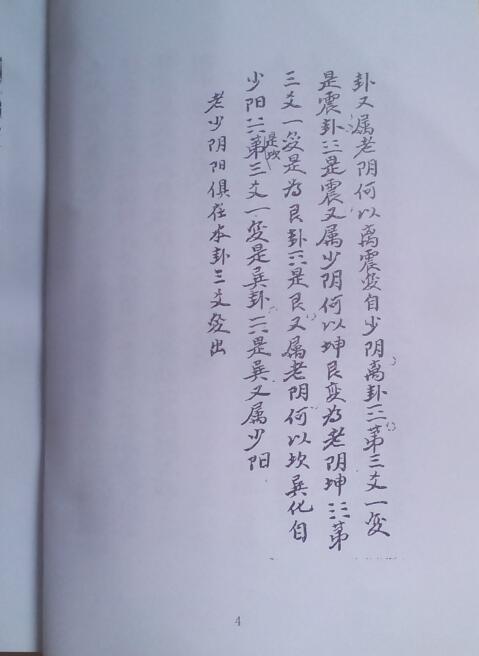 卦又属老阴何以离震变自少阴离卦☲第三爻一变
是震卦☳是震又属少阴何以坤艮变为老阴坤☷第
三爻一变是为艮卦☶是艮又属老阴何以坎巽化自
少阳☵是坎第三爻一变是巽卦☴是巽又属少阳
老少阴阳俱在本卦三爻变出
4